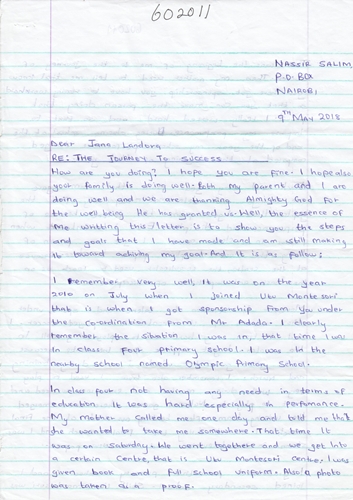 602011
NASSIR SALIM,
P.O. BOX
NAIROBI,
9TH MAY 2018
Dear Jann Landorg
RE: THE JOURNEY TO SUCCESS
How are you doing? I hope you are fine. I hope also
your family is doing well. Both my parent and I are
doing well and we are thanking Almighty God for
the well being He has granted us. Well, the essence of
me writting this letter is to show you the steps
and goals that I have made and am still making
it toward achiving my goal. And it is as follow;
I remember very well, It was on the year
2010 on July when I joined Ubu Montesori
that is when I got sponsorship from you under
the co-ordination from Mr Adada. I clearly
remember the situation I was in, that time I was
In class four primary school. I was in the
nearby school named Olympic Primary School.
In class four not having any need in terms of
education it was hard especially in performance.
My mother called me one day and told me that
she wanted to take me somewhere. That time it
was on saturday. We went together and we get into
a certain centre, that is Ubu Montesori centre. I was
given book and full school uniform. Also a photo
was taken as a proof.